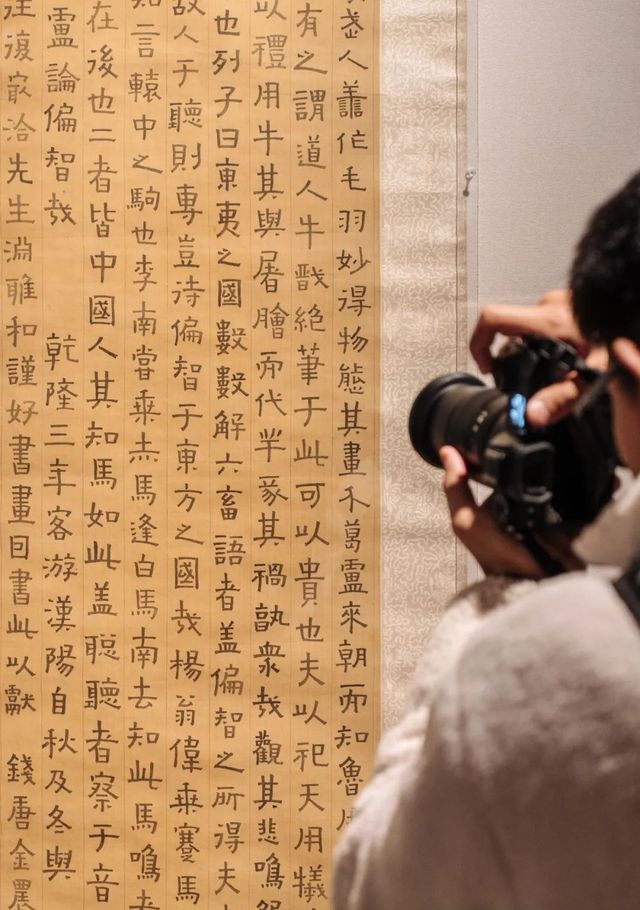 人善作毛羽妙得物態其畫介葛盧來朝而知魯
有之謂道人牛戬絕筆于此可以貴也夫以祀天用犧
以禮用牛其與屠膾而代羊豕其禍孰衆哉觀其悲鳴
也列子曰東夷之國數數解六畜語者蓋偏智之所得夫
故人于聽則專豈待偏智于東方之國哉楊翁偉乗蹇馬
知言轅中之駒也李南嘗乗赤馬逢白馬南去知此馬鳴者
在後也二者皆中國人其知馬如此蓋聰聽者察于音
盧論偏智哉 乾隆三年客游漢陽自秋及冬與
往復最洽先生淵雅和謹好書畫因書此以獻 錢唐金農